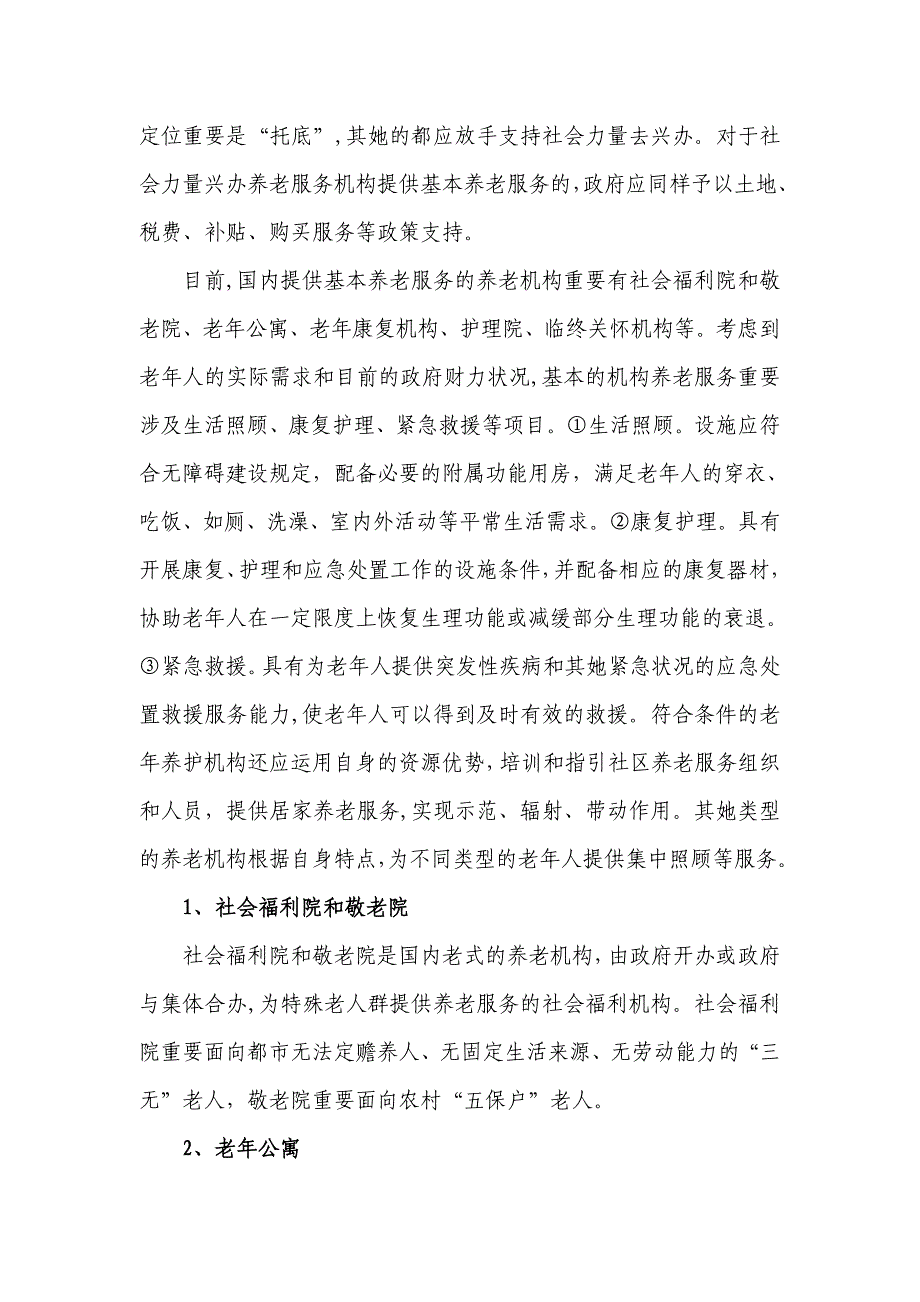 定位重要是“托底”,其她的都应放手支持社会力量去兴办。对于社
会力量兴办养老服务机构提供基本养老服务的,政府应同样予以土地、
税费、补贴、购买服务等政策支持。
目前,国内提供基本养老服务的养老机构重要有社会福利院和敬
老院、老年公寓、老年康复机构、护理院、临终关怀机构等。考虑到
老年人的实际需求和目前的政府财力状况,基本的机构养老服务重要
涉及生活照顾、康复护理、紧急救援等项目。①生活照顾。设施应符
合无障碍建设规定，配备必要的附属功能用房，满足老年人的穿衣、
吃饭、如厕、洗澡、室内外活动等平常生活需求。②康复护理。具有
开展康复、护理和应急处置工作的设施条件,并配备相应的康复器材,
协助老年人在一定限度上恢复生理功能或减缓部分生理功能的衰退。
③紧急救援。具有为老年人提供突发性疾病和其她紧急状况的应急处
置救援服务能力,使老年人可以得到及时有效的救援。符合条件的老
年养护机构还应运用自身的资源优势,培训和指引社区养老服务组织
和人员，提供居家养老服务,实现示范、辐射、带动作用。其她类型
的养老机构根据自身特点,为不同类型的老年人提供集中照顾等服务。
1、社会福利院和敬老院
社会福利院和敬老院是国内老式的养老机构,由政府开办或政府
与集体合办,为特殊老人群提供养老服务的社会福利机构。社会福利
院重要面向都市无法定赡养人、无固定生活来源、无劳动能力的“三
无”老人，敬老院重要面向农村“五保户”老人。
2、老年公寓